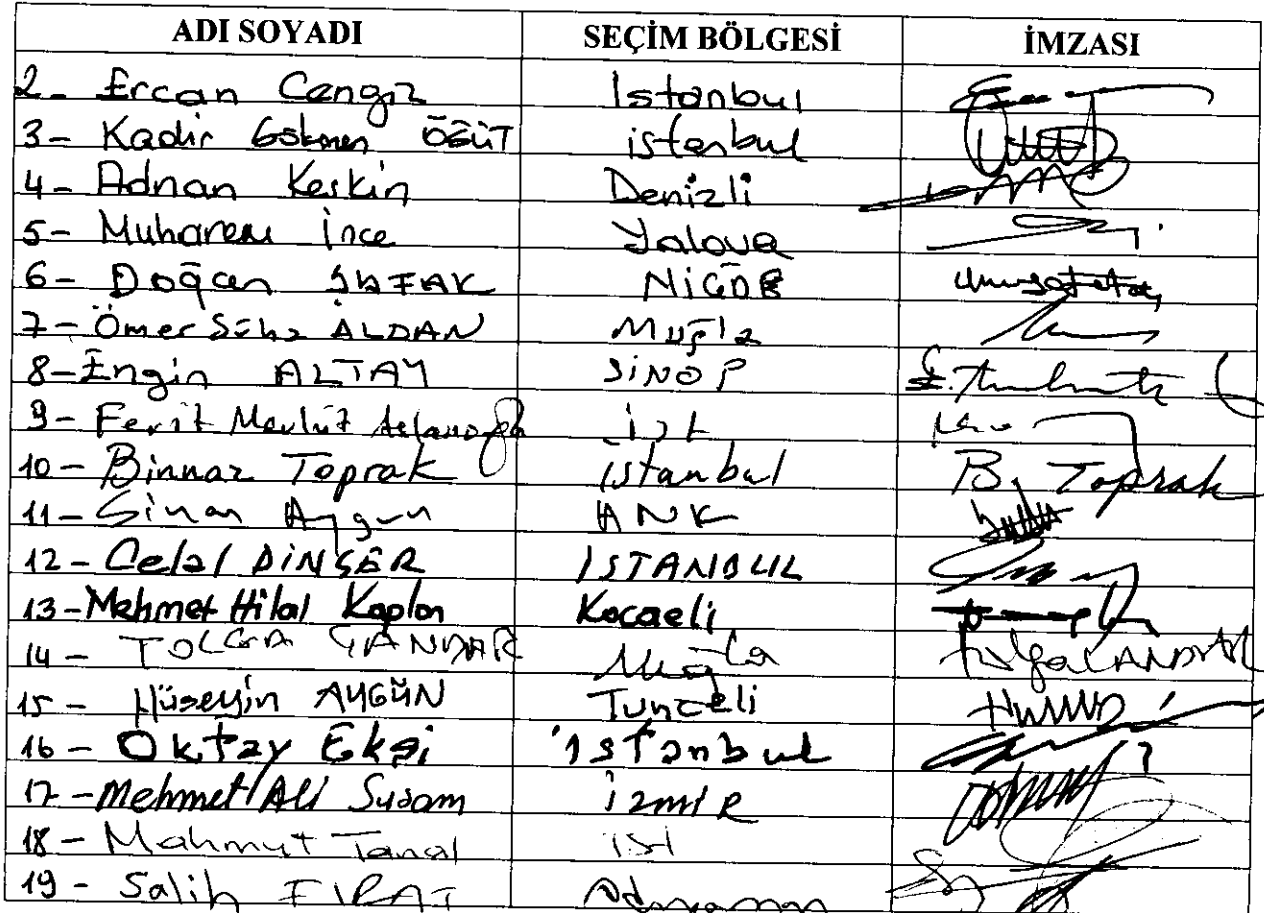 ADI SOYADI SEÇİM BÖLGESİ İMZASI
2- Ercan Cengiz İstanbul
3- Kadir Gökmen ÖĞÜT istanbul
4- Adnan Keskin Denizli
5- Muharrem İnce Yalova
6- Doğan ŞAFAK NİĞDE
7- Ömer Süha ALDAN Muğla
8- Engin ALTAY SİNOP
9- Ferit Mevlüt Aslanoğlu İst
10- Binnaz Toprak İstanbul B. Toprak
11- Sinan Aygün ANK
12- Celal DİNÇER İSTANBUL
13- Mehmet Hilal Kaplan Kocaeli
14- TOLGA ÇANDAR Muğla Tolga ÇANDAR
15- Hüseyin AYGÜN Tunceli
16- Oktay Ekşi İstanbul
17- Mehmet Ali Susam İzmİR
18- Mahmut Tanal İst
19- Salih FIRAT Adıyaman